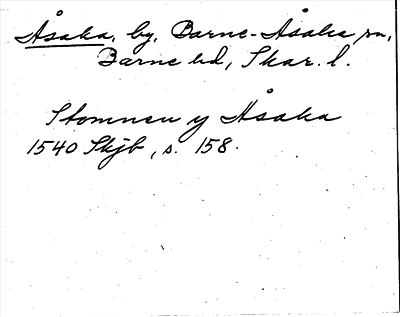 Åsaka, by, Barne-Åsaka sn,
Barne hd, Skar. l.
Stomnen y Åsaka
1540 Skjb, s. 158.